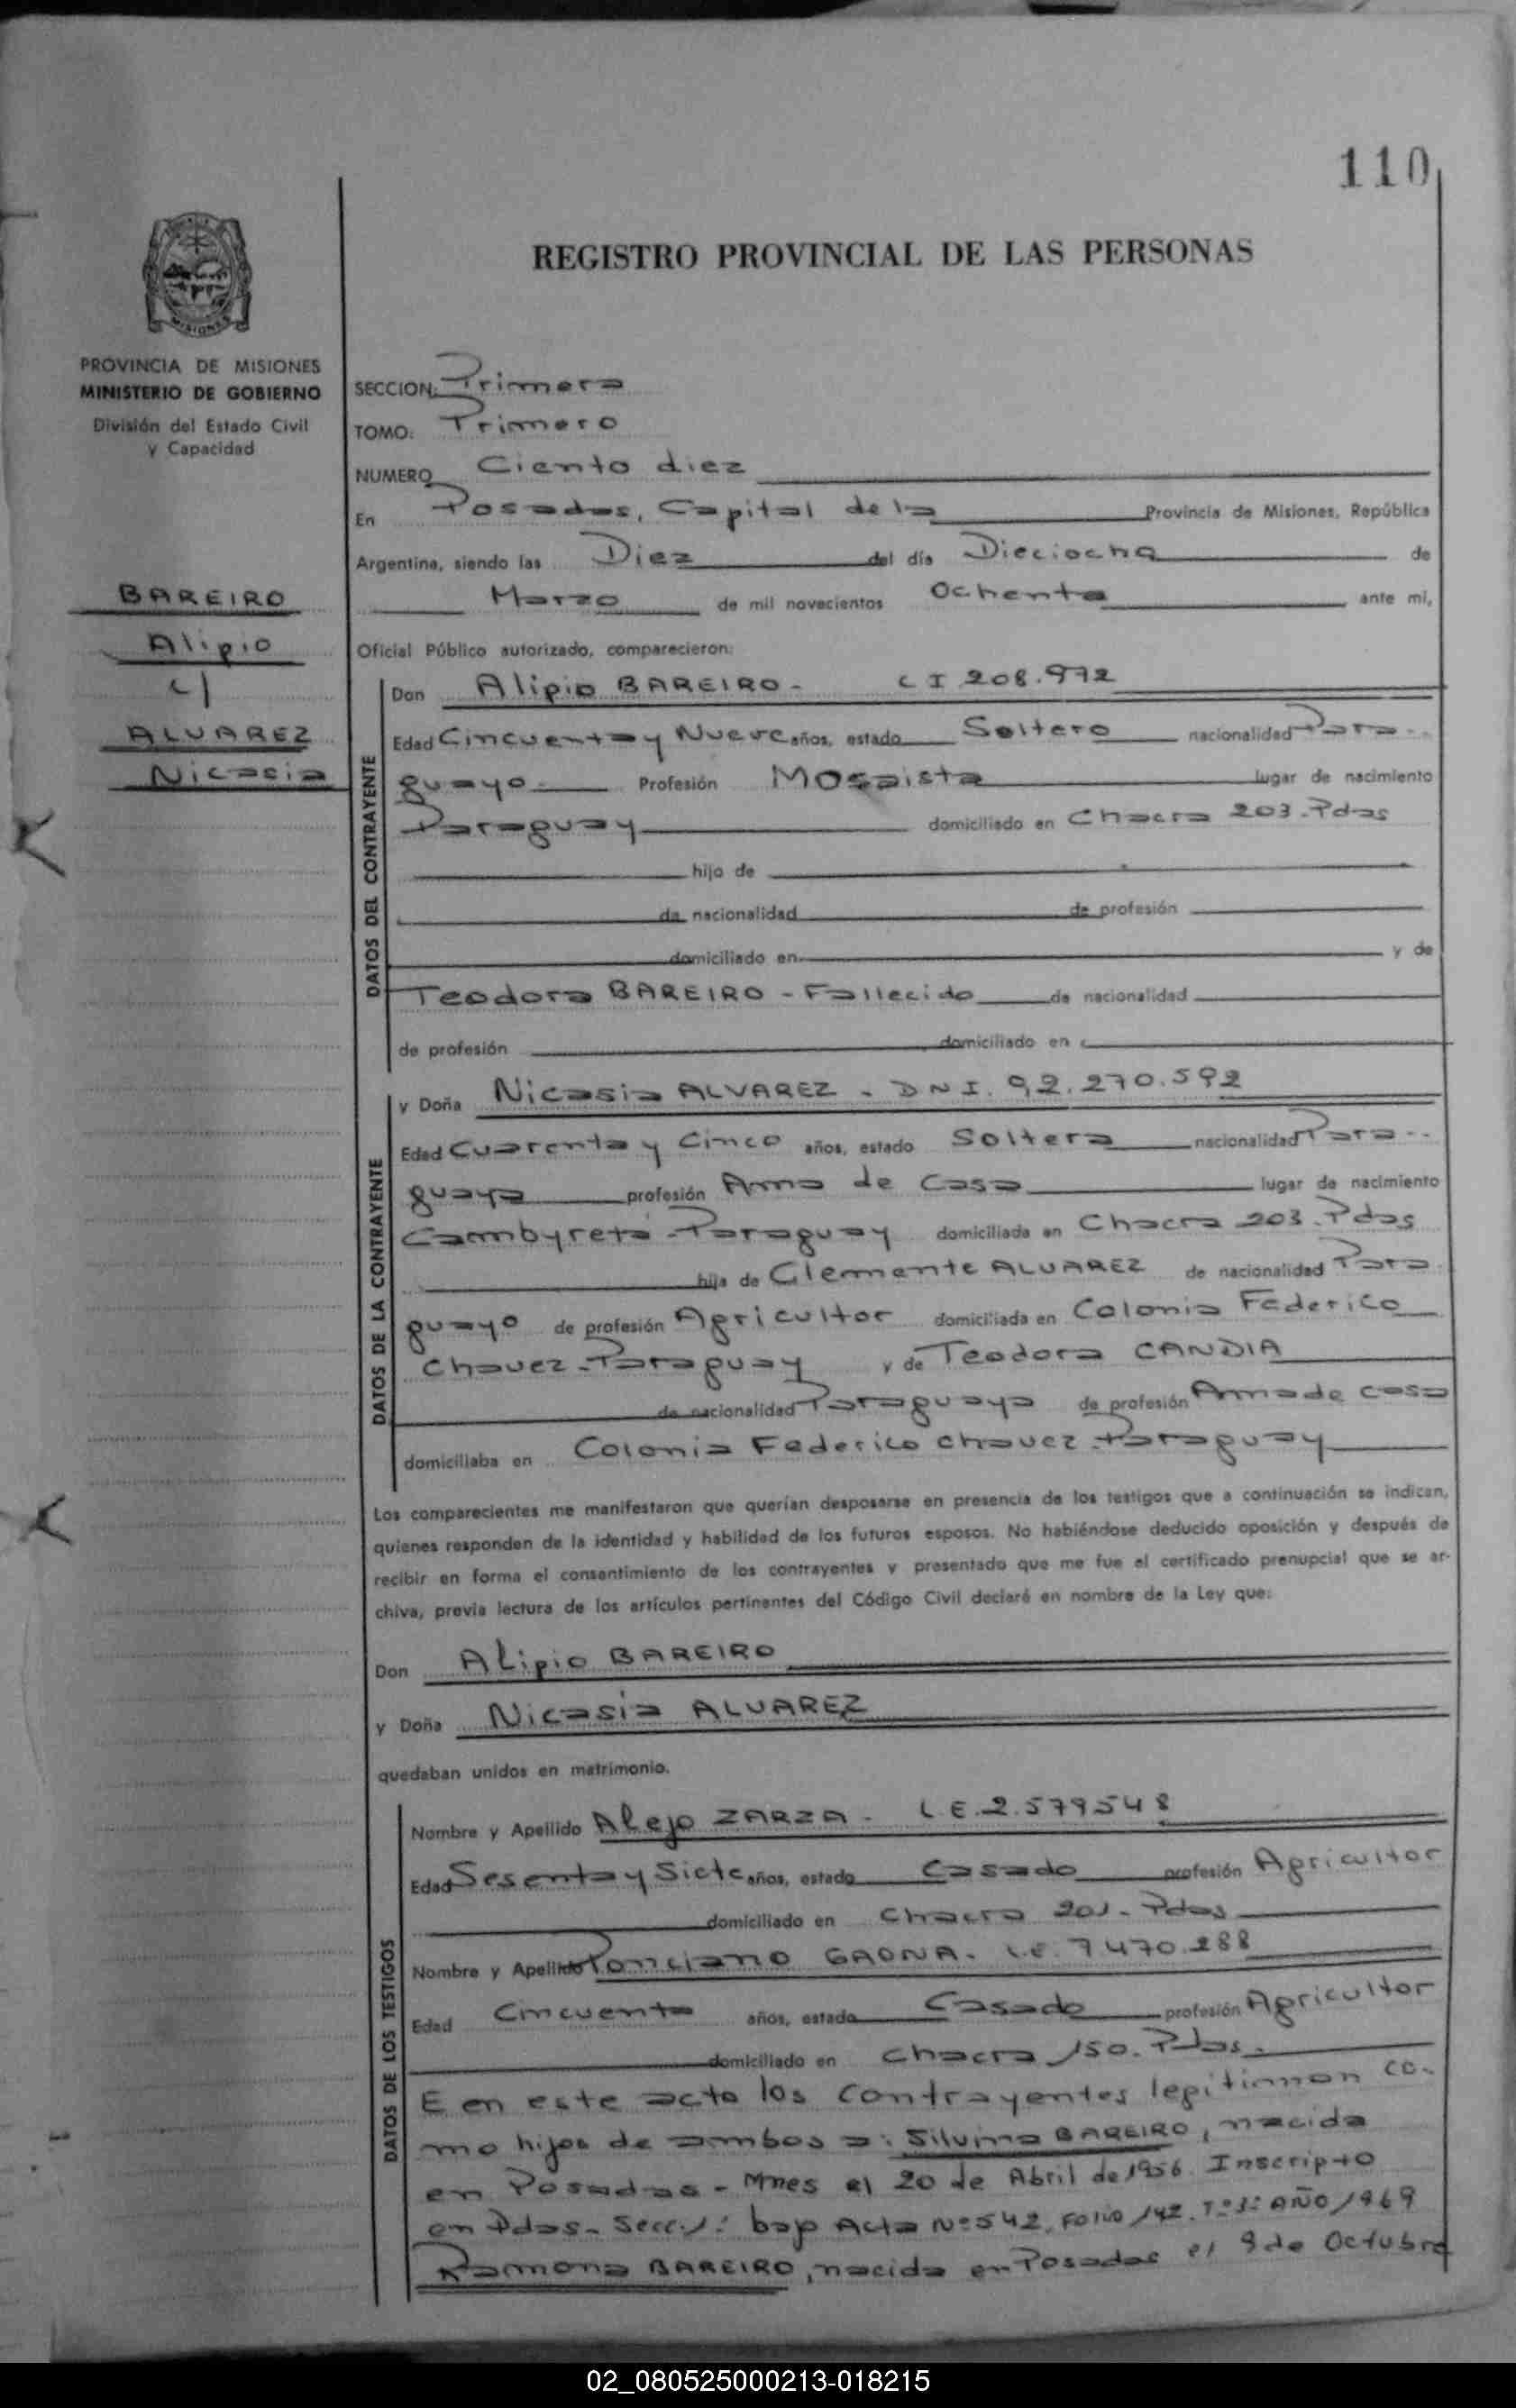 110
REGISTRO PROVINCIAL DE LAS PERSONAS
MISIONES
PROVINCIA DE MISIONES
MINISTERIO DE GOBIERNO
División del Estado Civil
y Capacidad
BAREIRO
Alipio
c/
ALVAREZ
Nicasia
SECCION: Primera
TOMO: Primero
NUMERO Ciento diez
En Posadas, Capital de la Provincia de Misiones, República
Argentina, siendo las Diez del día Dieciocho de
Marzo de mil novecientos Ochenta ante mi,
Oficial Público autorizado, comparecieron:
DATOS DEL CONTRAYENTE
Don Alipio BAREIRO - C I 208.972
Edad Cincuenta y Nueve años, estado Soltero nacionalidad Para-
guayo Profesión Mosaista lugar de nacimiento
Paraguay domiciliado en Chacra 203. Pdas
hijo de
de nacionalidad de profesión
domiciliado en y de
Teodora BAREIRO - Fallecido de nacionalidad
de profesión domiciliado en
DATOS DE LA CONTRAYENTE
y Doña Nicasia ALVAREZ - DNI. 92.270.592
Edad Cuarenta y Cinco años, estado Soltera nacionalidad Para-
guaya profesión Ama de Casa lugar de nacimiento
Cambyreta - Paraguay domiciliada en Chacra 203. Pdas
hija de Clemente ALVAREZ de nacionalidad Para
guayo de profesión Agricultor domiciliada en Colonia Federico
Chavez - Paraguay y de Teodora CANDIA
de nacionalidad Paraguaya de profesión Ama de casa
domiciliaba en Colonia Federico Chavez - Paraguay
Los comparecientes me manifestaron que querían desposarse en presencia de los testigos que a continuación se indican,
quienes responden de la identidad y habilidad de los futuros esposos. No habiéndose deducido oposición y después de
recibir en forma el consentimiento de los contrayentes y presentado que me fue el certificado prenupcial que se ar-
chiva, previa lectura de los artículos pertinentes del Código Civil declaré en nombre de la Ley que:
Don Alipio BAREIRO
y Doña Nicasia ALVAREZ
quedaban unidos en matrimonio.
DATOS DE LOS TESTIGOS
Nombre y Apellido Alejo ZARZA - L.E. 2.579548
Edad Sesenta y Siete años, estado Casado profesión Agricultor
domiciliado en Chacra 201 - Pdas
Nombre y Apellido Ponciano GAONA - L.E. 7470.288
Edad Cincuenta años, estado Casado profesión Agricultor
domiciliado en Chacra 150. Pdas.
E en este acto los contrayentes legitiman co-
mo hijos de ambos a: Silvina BAREIRO, nacida
en Posadas - Mnes el 20 de Abril de 1956. Inscripto
en Pdas - Secc. 1: bajo Acta Nº 542, Folio 142. Tº 3º AÑO 1969
Ramona BAREIRO, nacida en Posadas el 9 de Octubre
02_080525000213-018215